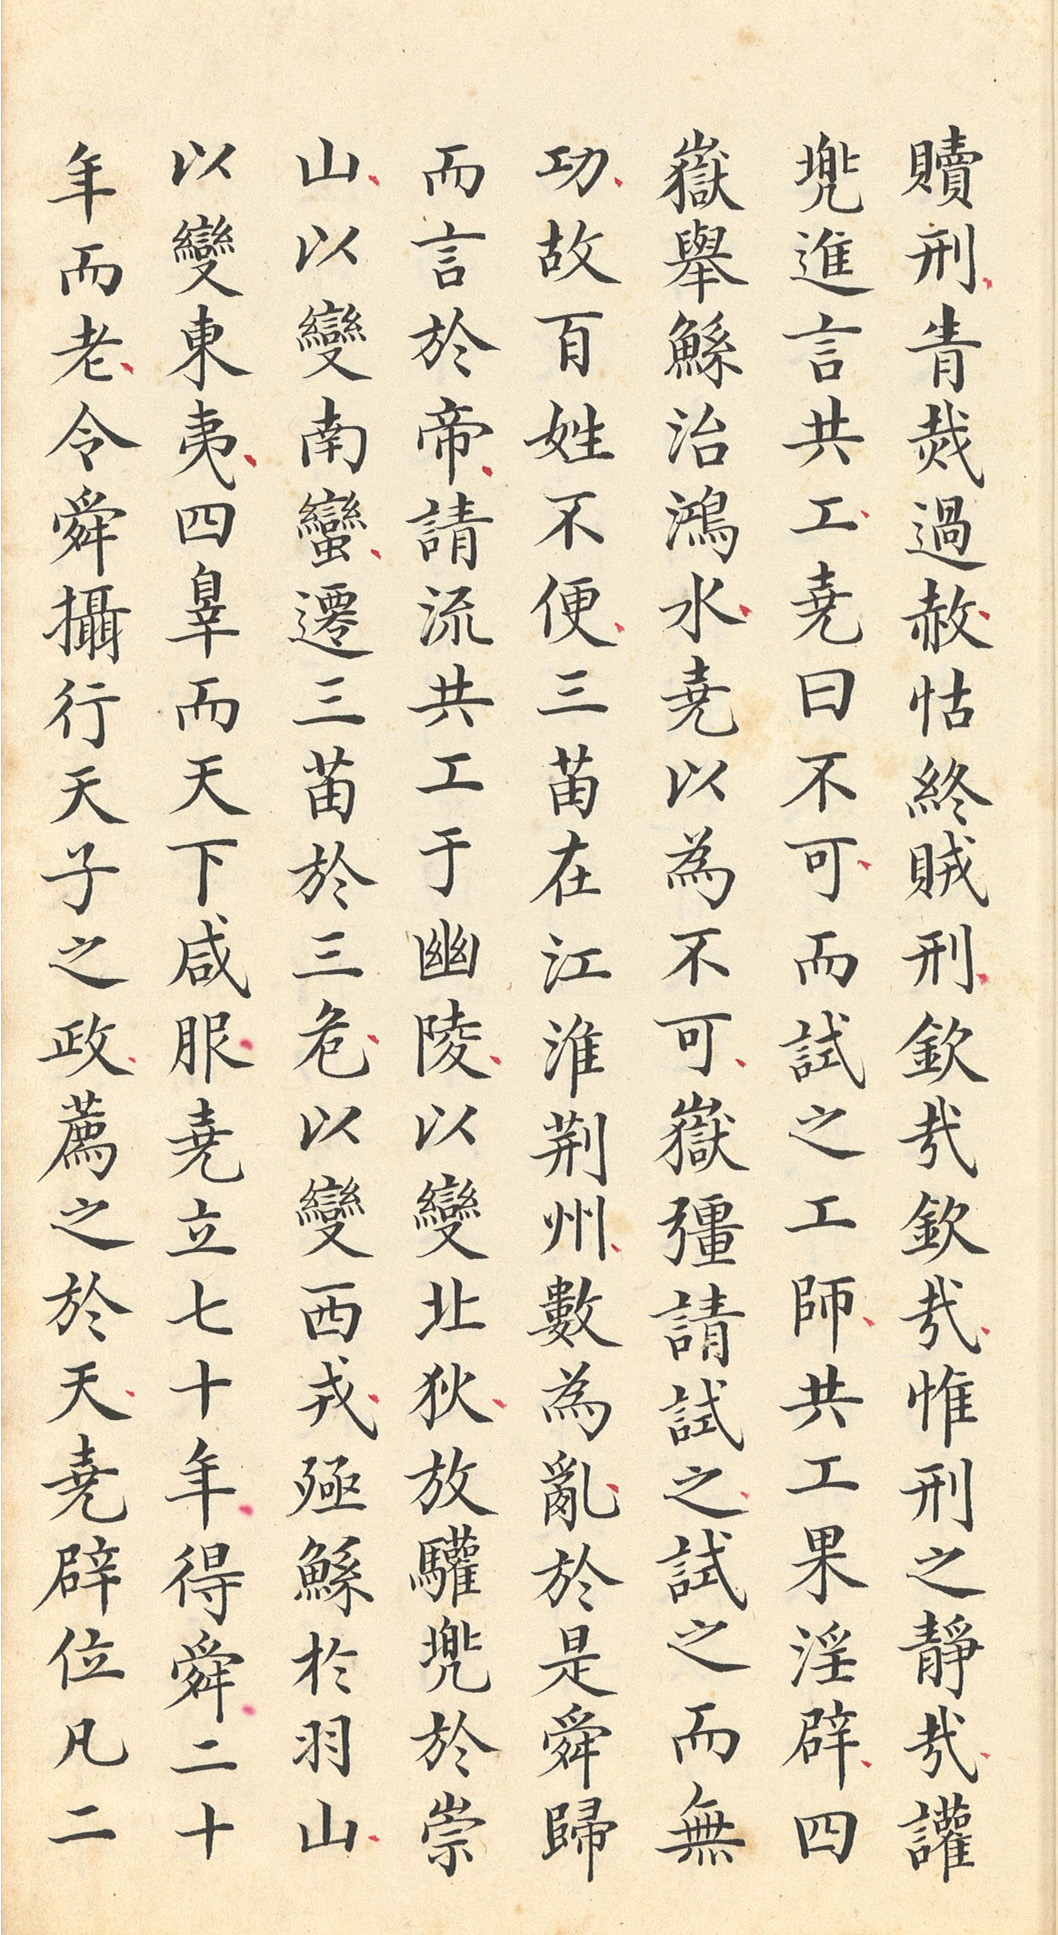 贖刑眚烖過赦怙終賊刑欽哉欽哉惟刑之靜哉讙
兜進言共工堯曰不可而試之工師共工果淫辟四
嶽舉鯀治鴻水堯以為不可嶽彊請試之試之而無
功故百姓不便三苗在江淮荆州數為亂於是舜歸
而言於帝請流共工于幽陵以變北狄放驩兜於崇
山以變南蠻遷三苗於三危以變西戎殛鯀於羽山
以變東夷四辠而天下咸服堯立七十年得舜二十
年而老令舜攝行天子之政薦之於天堯辟位凡二